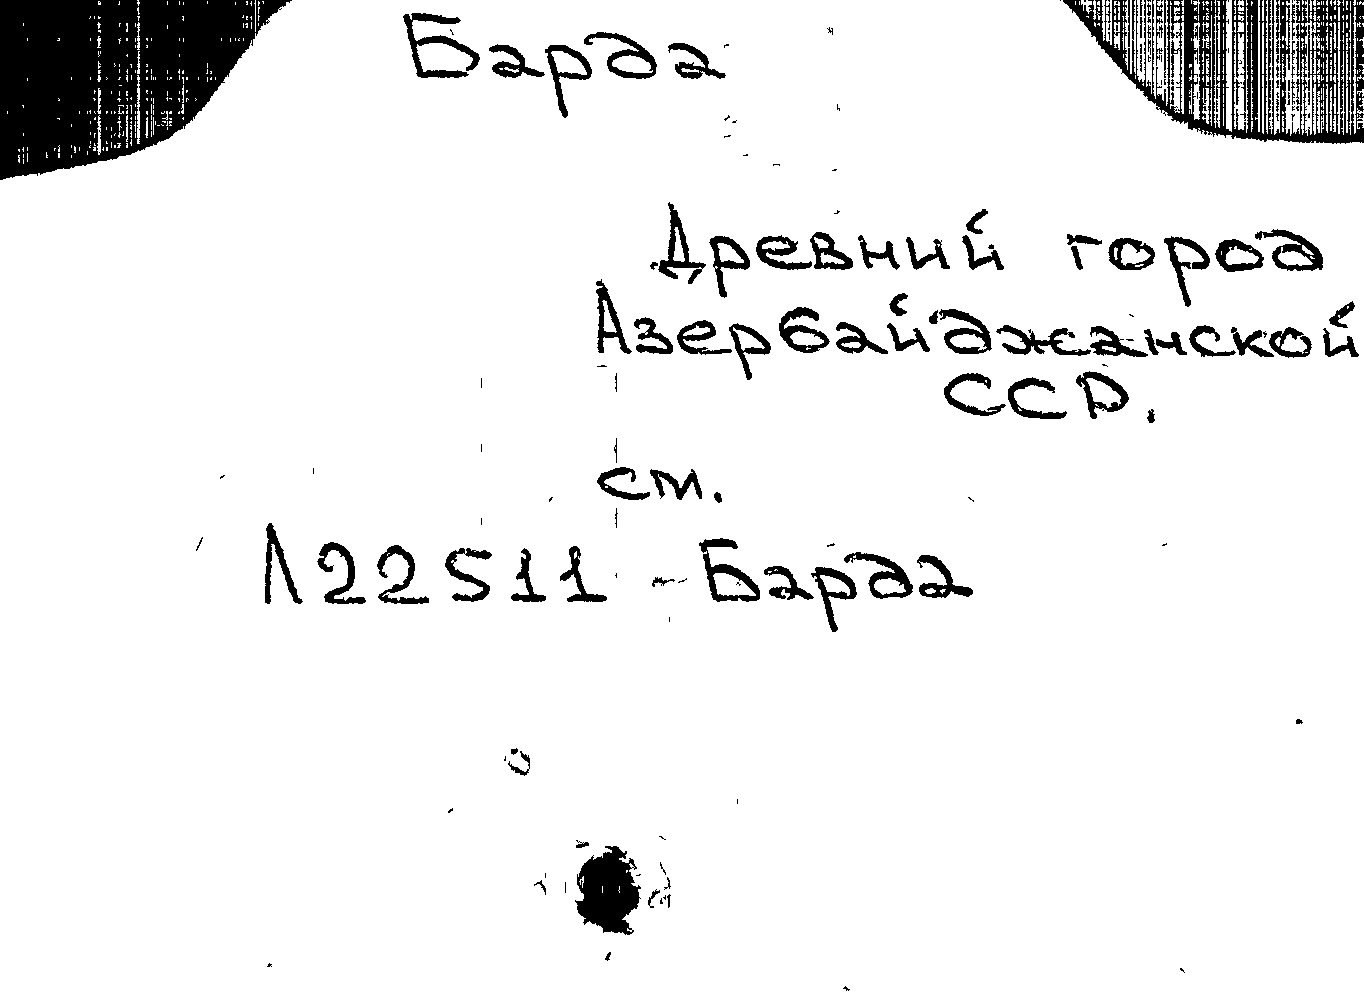 Барда
Древний город
Азербайджанской
ССР.
ст.
Л22511 - Барда